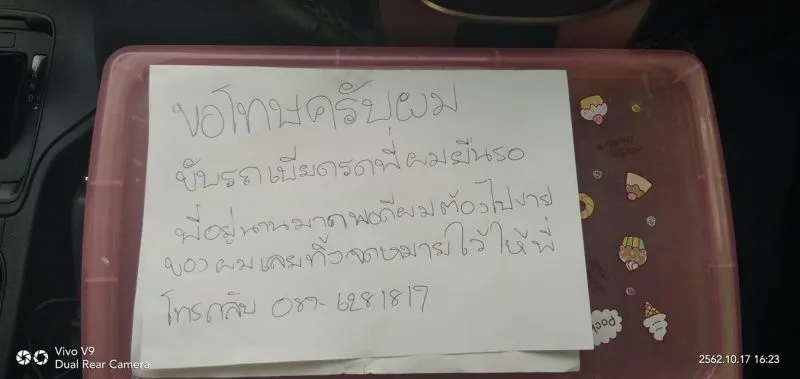 ขอโทษครับผม
ขับรถเบียดรถพี่ผมยืนรอ
พี่อยู่นานมากพอดีผมต้องไปขาย
ของผมเลยทิ้งจดหมายไว้ให้พี่
โทรกลับ 087-6281817
Vivo V9
Dual Rear Camera
2562.10.17 16:23